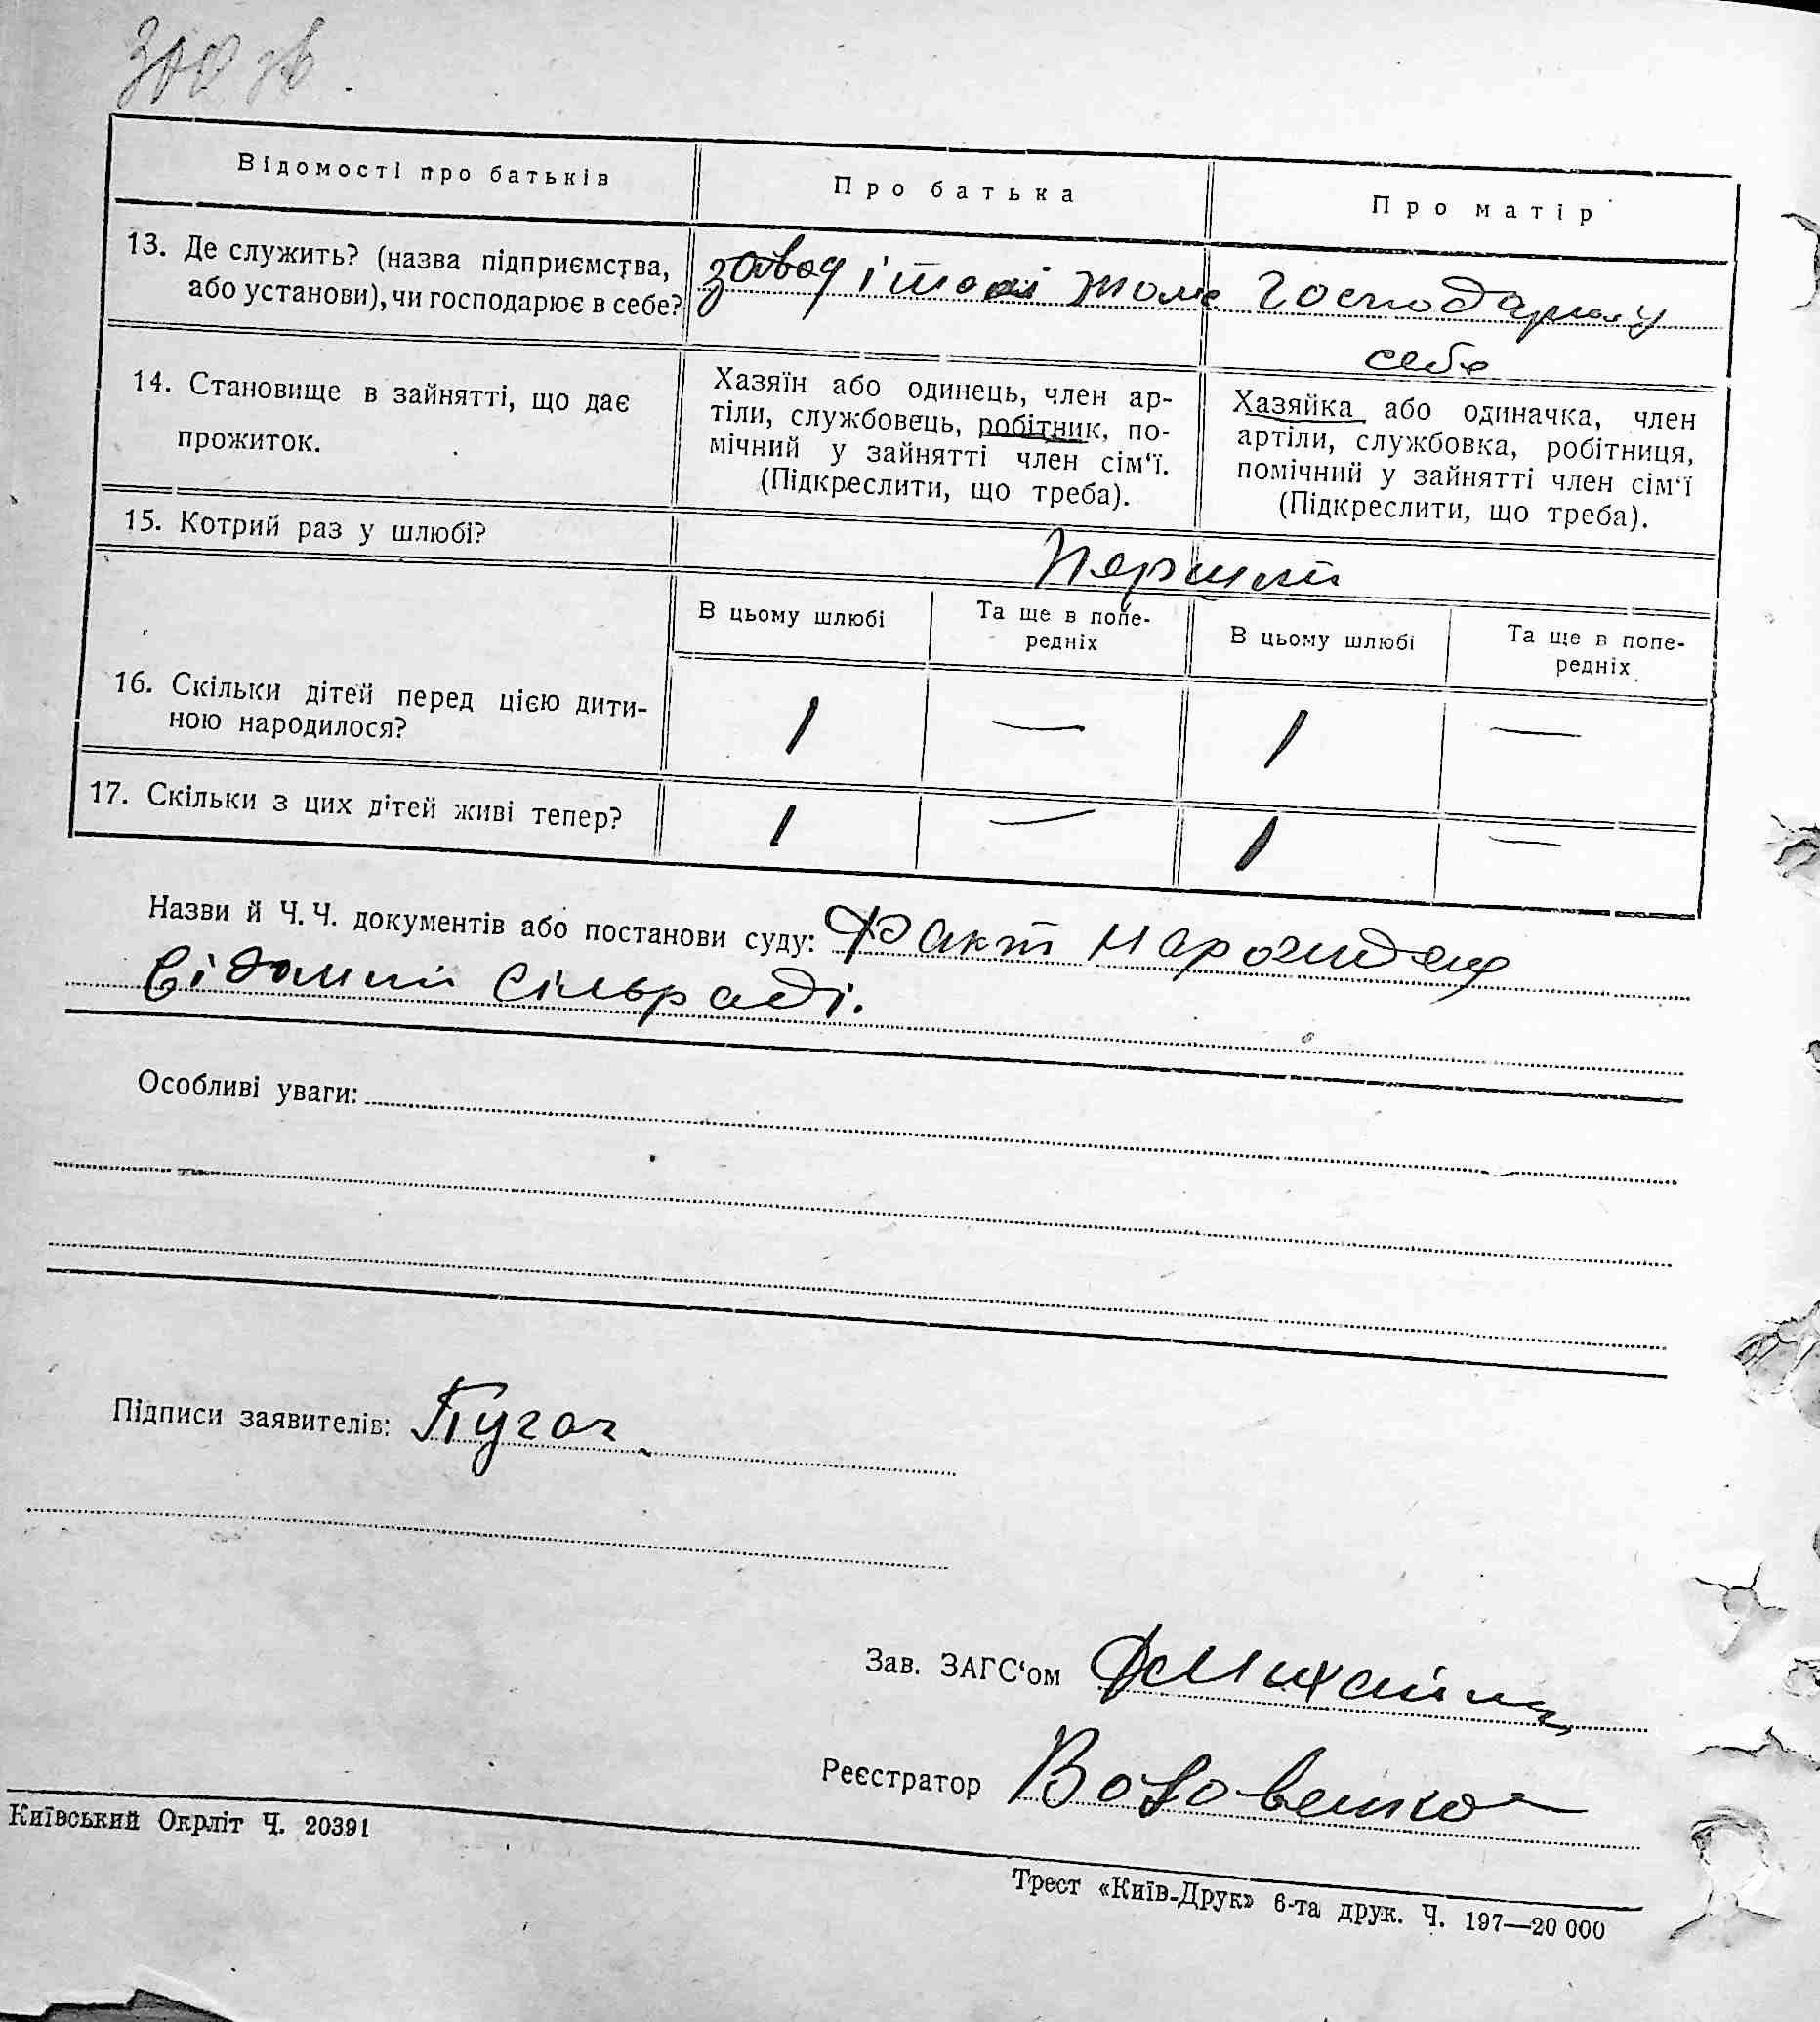 300 зв.
Відомості про батьків
Про батька
Про матір
13. Де служить? (назва підприємства,
або установи), чи господарює в себе?
завод
Господарює у
себе
14. Становище в зайнятті, що дає
прожиток.
Хазяїн або одинець, член ар-
тіли, службовець, робітник, по-
мічний у зайнятті член сім‘ї.
(Підкреслити, що треба).
Хазяйка або одиначка, член
артіли, службовка, робітниця,
помічний у зайнятті член сім‘ї
(Підкреслити, що треба).
15. Котрий раз у шлюбі?
Перший
В цьому шлюбі
Та ще в попе-
редніх
В цьому шлюбі
Та ще в попе-
редніх.
16. Скільки дітей перед цією дити-
ною народилося?
1 — 1 —
17. Скільки з цих дітей живі тепер?
1 — 1 —
Назви й Ч. Ч. документів або постанови суду: Факт народження
відомий сільраді.
Особливі уваги:
Підписи заявителів: Пугач
Зав. ЗАГС‘ом
Реєстратор
Київський Окрліт Ч. 20391
Трест «Київ-Друк» 6-та друк. Ч. 197—20 000